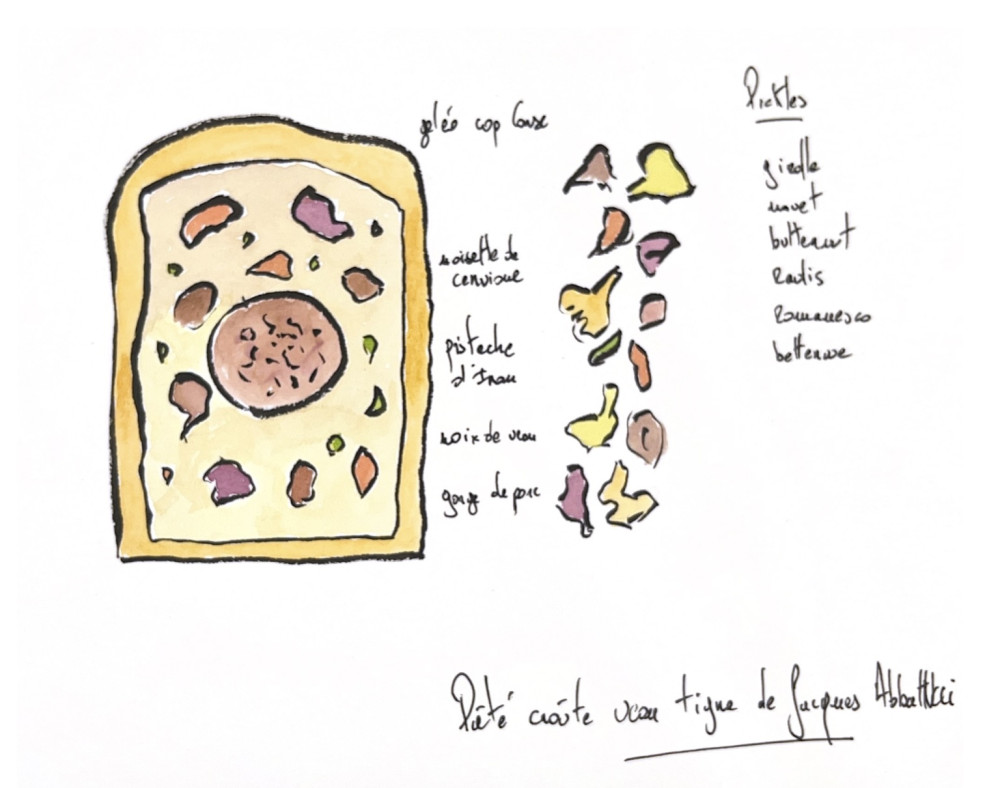 gelée cap Corse
noisette de
cervione
pistache
d'Iran
noix de veau
gorge de porc
Pickles
girolle
navet
butternut
Radis
Romanesco
betterave
Pâté croûte veau tigre de Jacques Abbattucci